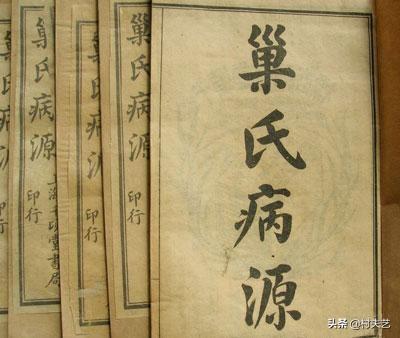 巢氏病源
巢氏病源
印行
巢氏病源
印行
巢氏病源
上海千頃堂書局
印行
头条 @村夫艺